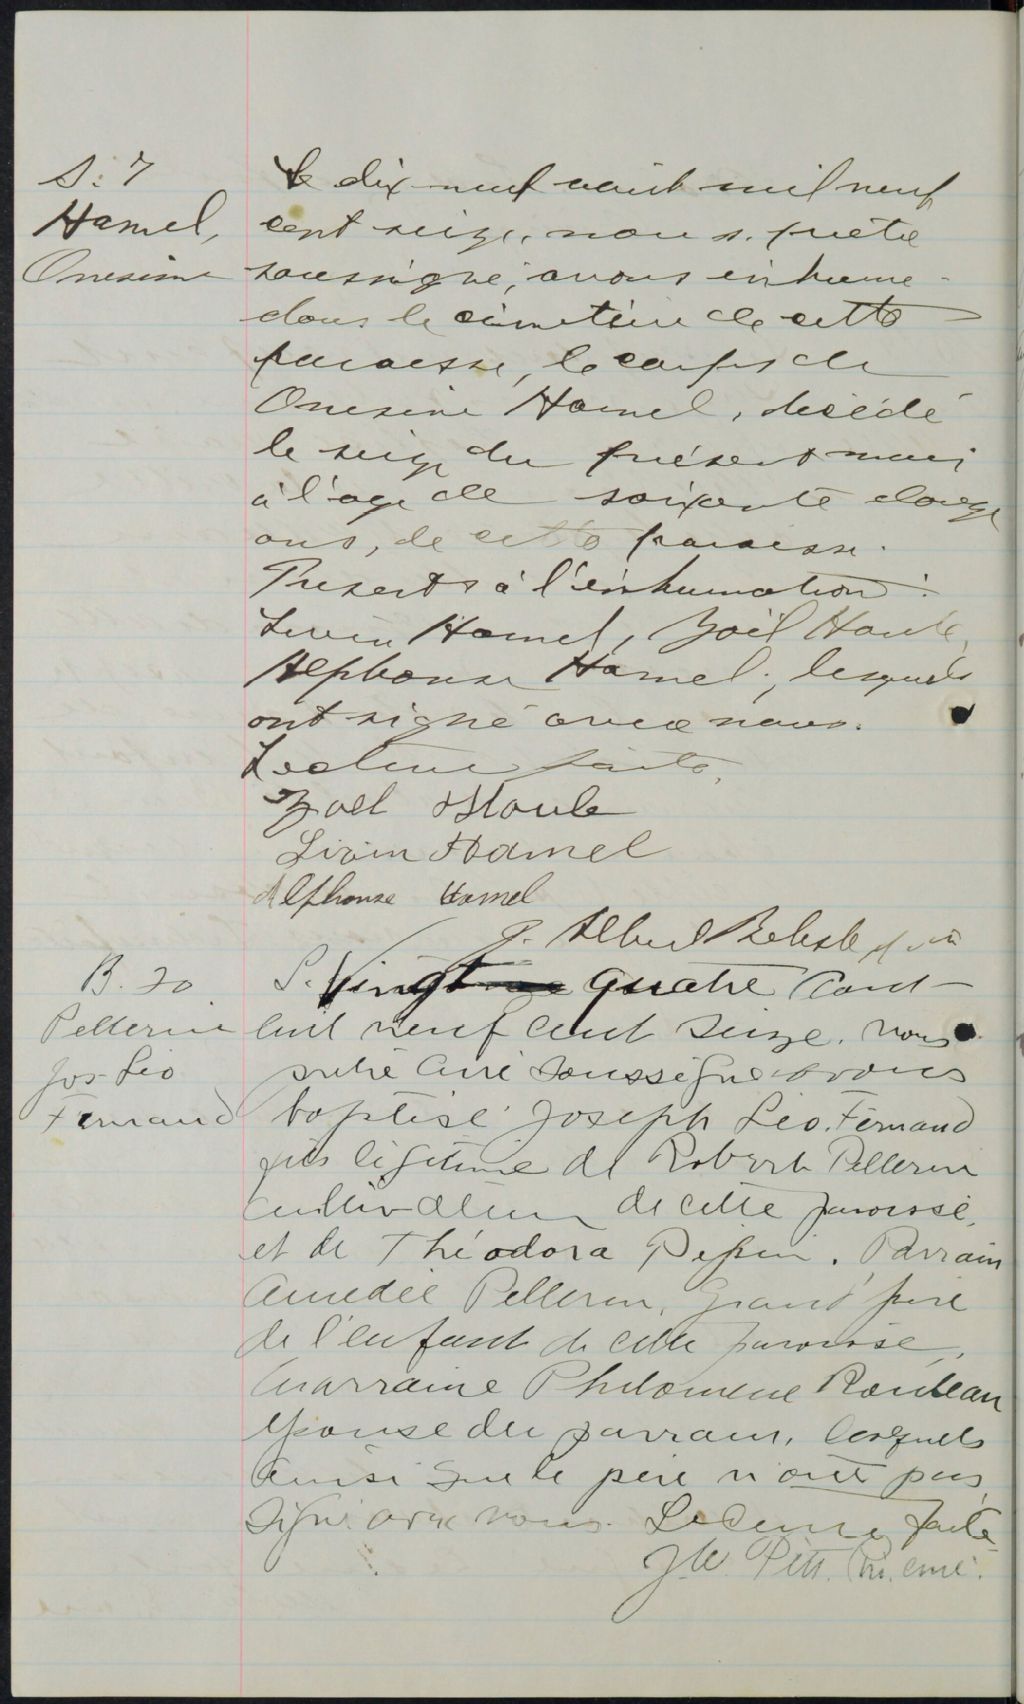 S. 7
Hamel,
Onesime
Le dix neuf août mil neuf
cent seize, nous, prêtre
soussigné, avons inhumé
dans le cimetière de cette
paroisse, le corps de
Onesime Hamel, décédé
le seize du présent mois
à l'age de soixante douze
ans, de cette paroisse.
Présents à l'inhumation :
Livin Hamel, Zoël Houle,
Alphonse Hamel, lesquels
ont signé avec nous.
Lecture faite,
Zoël Houle
Livin Hamel
Alphonse Hamel
J. Albert
B. 20
Pellerin
Jos Léo
Fernand
Vingt quatre Aout
mil neuf cent seize. nous
prêtre curé soussigné avons
baptisé Joseph Léo. Fernand
fils légitime de Robert Pellerin
cultivateur de cette paroisse,
et de Théodora Pepin. Parrain
Amedée Pellerin, grand'père
de l'enfant de cette paroisse,
Marraine Philomene Rouleau
épouse du parrain, lesquels
ainsi que le père n'ont pas
signé avec nous. Lecture faite
Ptr. curé.